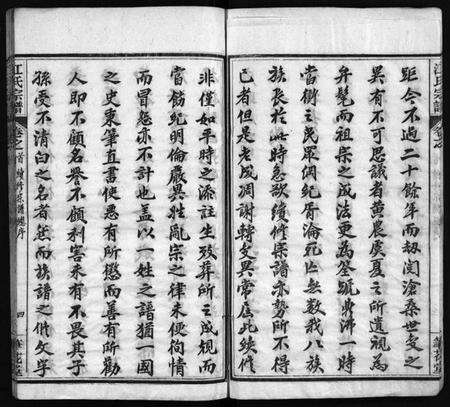 江氏宗譜
距今不過二十餘年而劫閱滄桑世變之
異有不可思議者黃農虞夏之所遺視為
弁髦而祖宗之成法更為筌蹏鼎沸一時
當衝之民罕倜紀胥淪死亡無數我八族
族長於此時急欲續修宗譜亦勢所不得
已者但是老成凋謝轉變異常爲此續修
非僅如平時之添註生歿葬所之成規而
當飭紀明倫嚴異姓亂宗之律未便徇情
而冒怨亦不計也蓋以一姓之譜猶一國
之史秉筆直書使惡有所懲而善有所勸
人即不顧名譽不顧利害未有不畏其子
孫受不清白之名者然而族譜之作文字
江氏宗譜
卷之首
續修宗譜總序
四